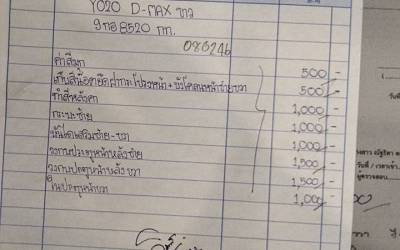 YO20 D-MAX ขาว
9กอ8520 กท.
080246
ค่าสีมุก 500 -
เก็บสีน๊อตยึดฝากระโปรงหน้า + บังโคลนหน้าซ้ายขวา 500 -
ทำสีหลังคา 1,000 -
กระบะซ้าย 1,000 -
บันไดเสริมซ้าย-ขวา 1,000 -
วงกบประตูหน้าหลังซ้าย 1,500 -
วงกบประตูหน้าหลังขวา 1,500 -
ใบประตูหน้าขวา 1,000 -